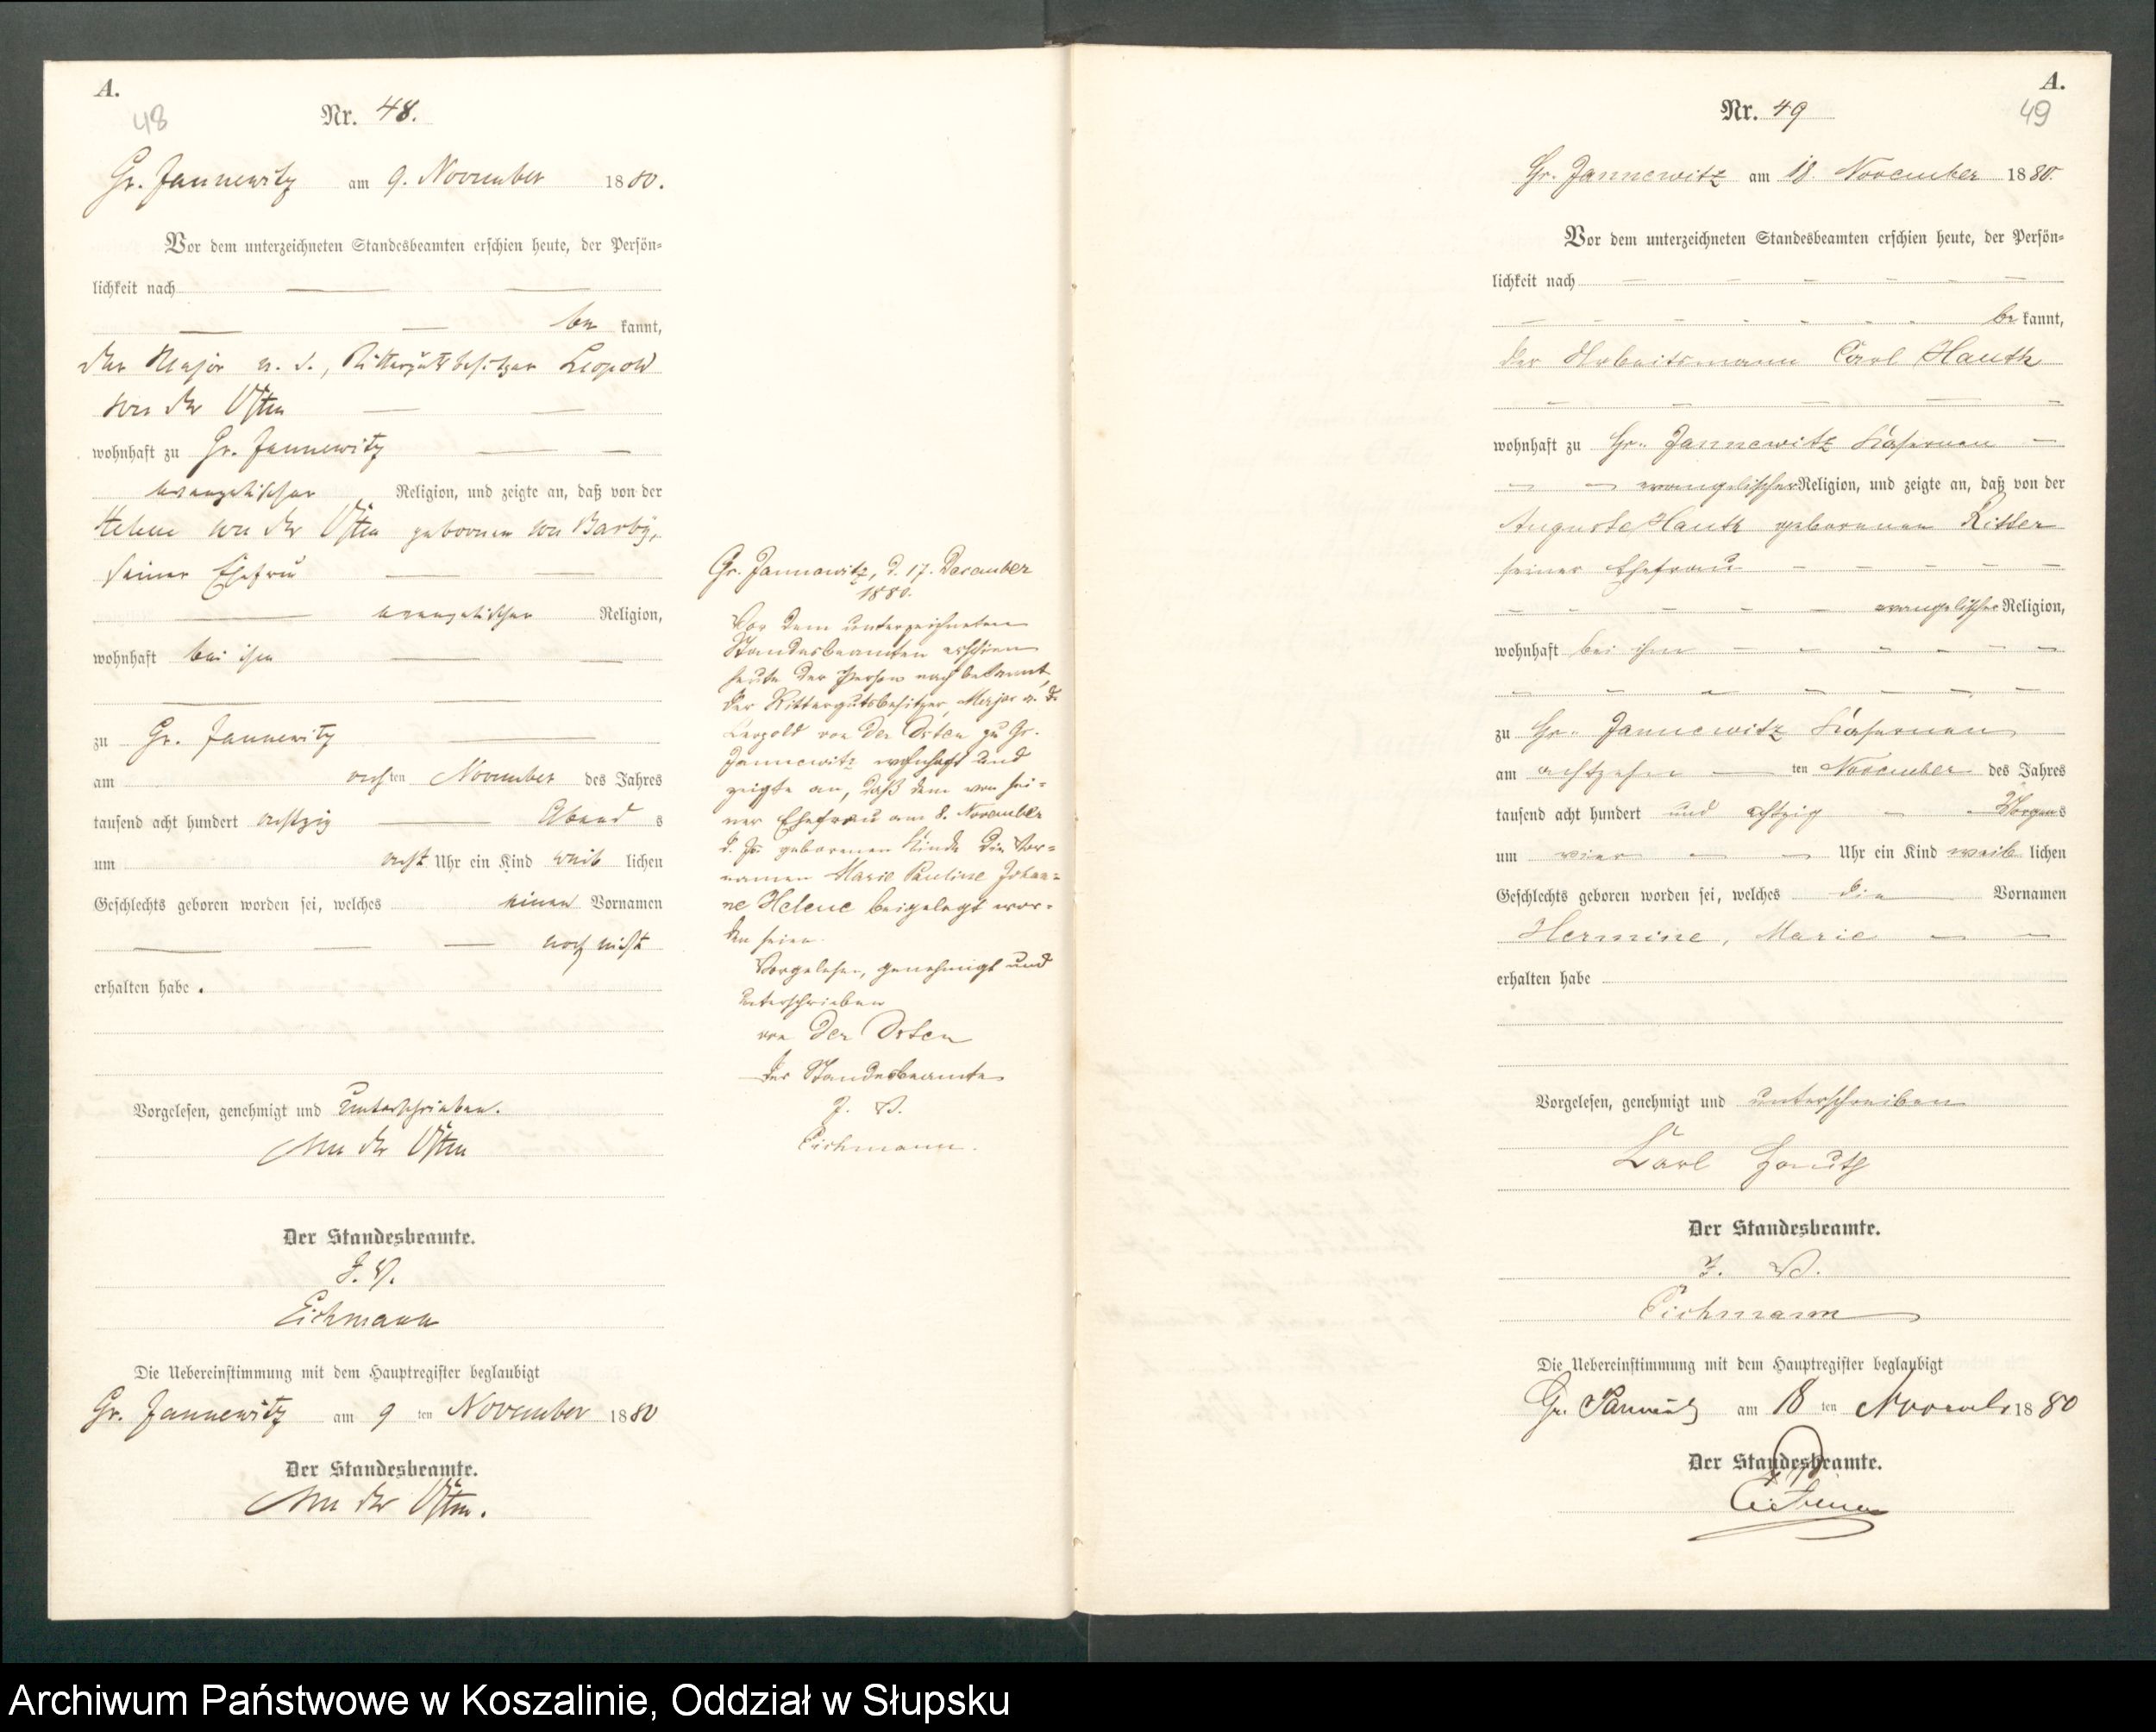 A.
48
Nr. 48.
Gr. Jannewitz am 9. November 1880.
Vor dem unterzeichneten Standesbeamten erschien heute, der Persön-
lichkeit nach
be kannt,
der Major a. D., Rittergutsbesitzer Leopold
von der Osten
wohnhaft zu Gr. Jannewitz
evangelischer Religion, und zeigte an, daß von der
Helene von der Osten geborenen von Barby,
seiner Ehefrau
evangelischer Religion,
wohnhaft bei ihm
zu Gr. Jannewitz
am achten November des Jahres
tausend acht hundert achtzig Abends
um acht Uhr ein Kind weib lichen
Geschlechts geboren worden sei, welches einen Vornamen
noch nicht
erhalten habe.
Vorgelesen, genehmigt und unterschrieben.
von der Osten
Der Standesbeamte.
J. V.
Eichmann
Die Uebereinstimmung mit dem Hauptregister beglaubigt
Gr. Jannewitz am 9 ten November 1880
Der Standesbeamte.
von der Osten.
Gr. Jannewitz, d. 17. December
1880.
Vor dem unterzeichneten
Standesbeamten erschien
heute der Person nach bekannt,
der Rittergutsbesitzer, Major a. D.
Leopold von der Osten zu Gr.
Jannewitz wohnhaft und
zeigte an, daß dem von sei-
ner Ehefrau am 8. November
d. Js. geborenen Kinde die Vor-
namen Marie Pauline Johan-
ne Helene beigelegt wor-
den seien.
Vorgelesen, genehmigt und
unterschrieben
von der Osten
Der Standesbeamte
J. V.
Eichmann.
A.
49
Nr. 49
Gr. Jannewitz am 18. November 1880.
Vor dem unterzeichneten Standesbeamten erschien heute, der Persön-
lichkeit nach
be kannt,
der Arbeitsmann Carl Hauth
wohnhaft zu Gr. Jannewitz Kasernen
evangelischer Religion, und zeigte an, daß von der
Auguste Hauth geborenen Ritter
seiner Ehefrau
evangelischer Religion,
wohnhaft bei ihm
zu Gr. Jannewitz Kasernen
am achtzehn ten November des Jahres
tausend acht hundert und achtzig Morgens
um vier Uhr ein Kind weib lichen
Geschlechts geboren worden sei, welches die Vornamen
Hermine, Marie
erhalten habe
Vorgelesen, genehmigt und unterschrieben
Karl Hauth
Der Standesbeamte.
J. V.
Eichmann
Die Uebereinstimmung mit dem Hauptregister beglaubigt
Gr. Jannewitz am 18 ten November 1880
Der Standesbeamte.
Eichmann
Archiwum Państwowe w Koszalinie, Oddział w Słupsku